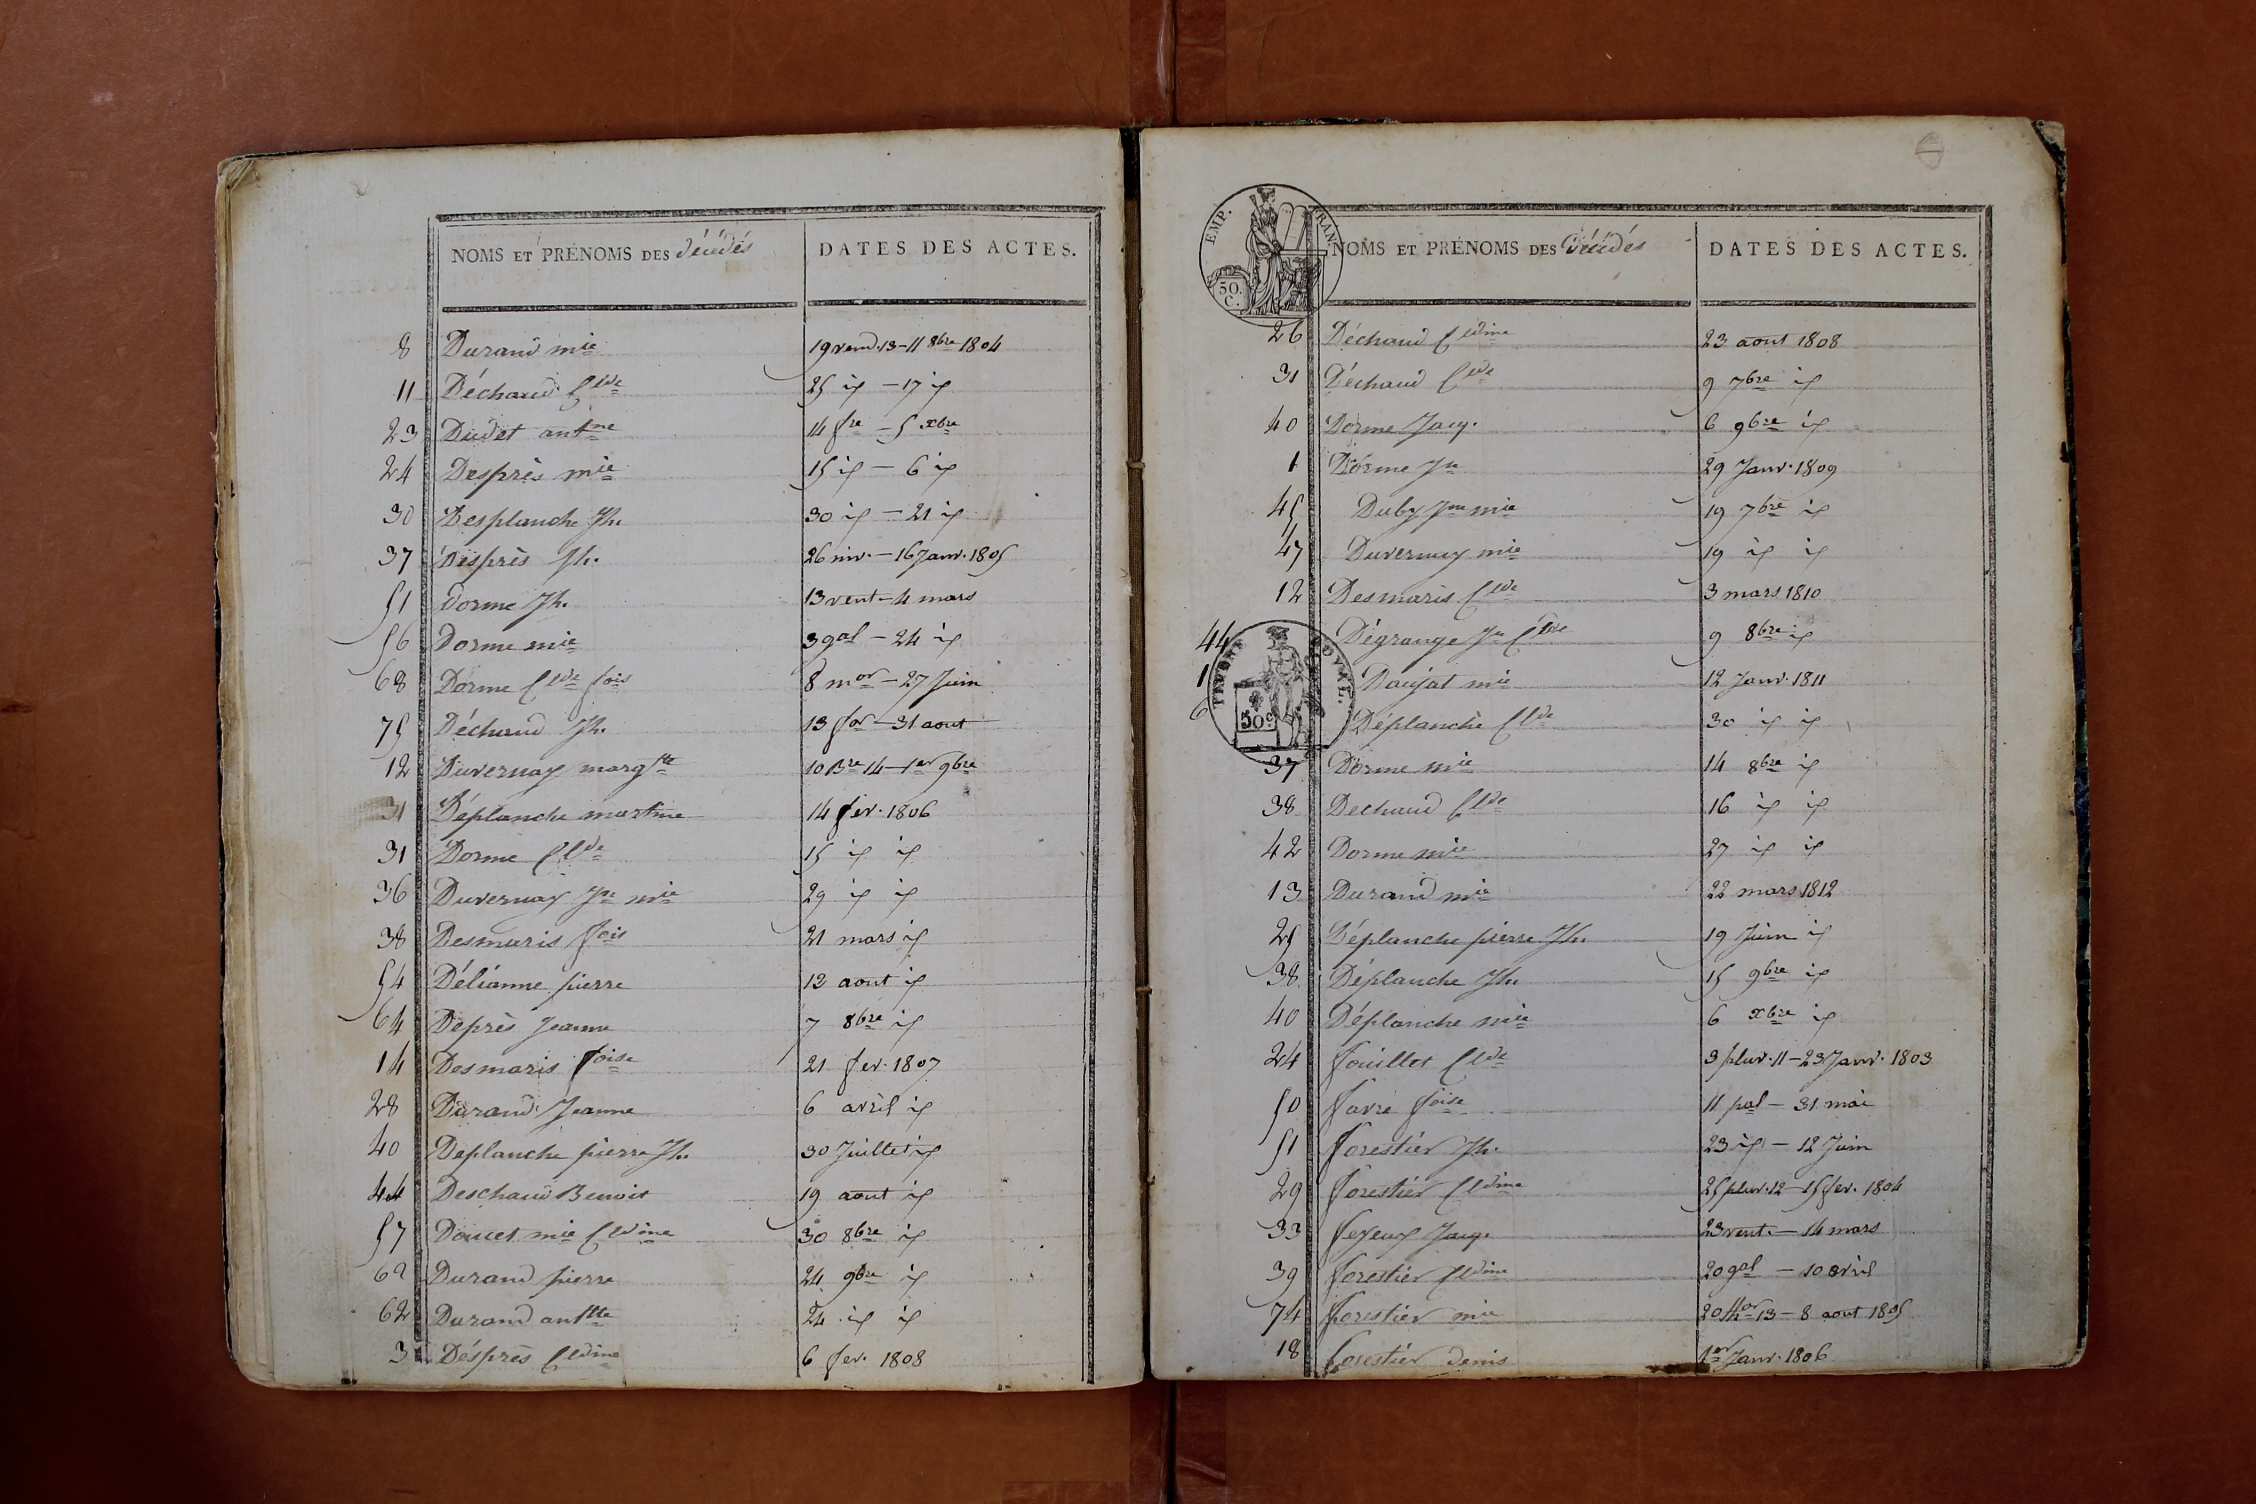 NOMS ET PRÉNOMS DES Décédés DATES DES ACTES.
8 Durand mie 19 vend. 13 - 11 8bre 1804
11 Déchaud Clde 25 id - 17 id
23 Dudet antne 14 fre - 5 xbre
24 Desprès mie 15 id - 6 id
30 Desplanche Jh. 30 id - 21 id
37 Desprès Jh. 26 niv. - 16 Janv. 1805
51 Dorme Jh. 13 vent - 4 mars
56 Dorme mie 3 gal - 24 id
68 Dorme Clde fois 8 mor - 27 Juin
75 Déchaud Jh. 13 for - 31 aout
12 Duvernay margte 10 Bre 14 - 1er 9bre
31 Déplanche martine 14 fev. 1806
31 Dorme Clde 15 id id
36 Duvernay Jne mie 29 id id
38 Desmaris fois 21 mars id
54 Délianne pierre 12 aout id
64 Deprès Jeanne 7 8bre id
14 Desmaris foise 21 fev. 1807
28 Durand Jeanne 6 avril id
40 Deplanche pierre Jh. 30 Juillet id
44 Deschaud Benoit 19 aout id
57 Doucet mie Cldine 30 8bre id
62 Durand pierre 24 9bre id
62 Durand antte 24 id id
3 Désprès Cldine 6 fev. 1808
EMP. FRAN.
50. C.
NOMS ET PRÉNOMS DES Décédés DATES DES ACTES.
26 Déchaud Cldine 23 aout 1808
31 Déchaud Clde 9 7bre id
40 Dorme Jacq. 6 9bre id
1 Dorme Jn 29 Janv. 1809
45 Duby Jne mie 19 7bre id
47 Duvernay mie 19 id id
12 Desmaris Clde 3 mars 1810
44 Dégrange Jn Clde 9 8bre id
1 Daujat mie 12 Janv. 1811
6 Déplanche Clde 30 id id
TIMBRE ROYAL.
50c
37 Dorme mie 14 8bre id
38 Dechaud Clde 16 id id
42 Dorme mie 27 id id
13 Durand mie 22 mars 1812
25 Déplanche pierre Jh. 19 Juin id
38 Déplanche Jh. 15 9bre id
40 Déplanche mie 6 xbre id
24 fouillet Clde 3 pluv. 11 - 23 Janv. 1803
50 favre foise 11 pal - 31 mai
51 forestier Jh. 23 id - 12 Juin
29 forestier Cldine 25 pluv. 12 - 15 fev. 1804
33 feyeux Jacq. 23 vent. - 14 mars
39 forestier Cldine 20 gal - 10 avril
74 forestier mie 20 thor 13 - 8 aout 1805
18 forestier Denis 1er Janv. 1806